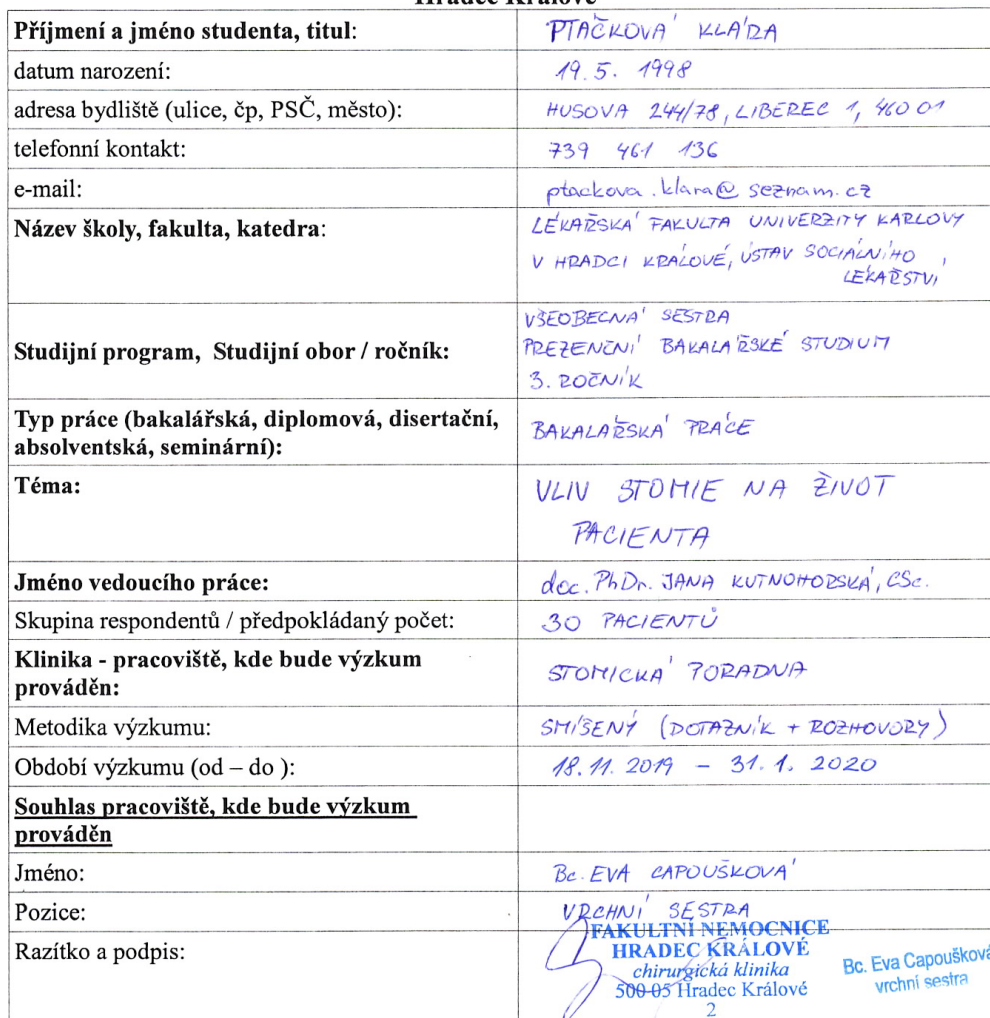 Hradec Králové
Příjmení a jméno studenta, titul: PTAČKOVÁ KLÁRA
datum narození: 19. 5. 1998
adresa bydliště (ulice, čp, PSČ, město): HUSOVA 244/78, LIBEREC 1, 460 01
telefonní kontakt: 739 461 136
e-mail: ptackova.klara@seznam.cz
Název školy, fakulta, katedra: LÉKAŘSKÁ FAKULTA UNIVERZITY KARLOVY
V HRADCI KRÁLOVÉ, ÚSTAV SOCIÁLNÍHO
LÉKAŘSTVÍ
VŠEOBECNÁ SESTRA
Studijní program, Studijní obor / ročník: PREZENČNÍ BAKALÁŘSKÉ STUDIUM
3. ROČNÍK
Typ práce (bakalářská, diplomová, disertační,
absolventská, seminární): BAKALÁŘSKÁ PRÁCE
Téma: VLIV STOMIE NA ŽIVOT
PACIENTA
Jméno vedoucího práce: doc. PhDr. JANA KUTNOHORSKÁ, CSc.
Skupina respondentů / předpokládaný počet: 30 PACIENTŮ
Klinika - pracoviště, kde bude výzkum
prováděn: STOMICKÁ PORADNA
Metodika výzkumu: SMÍŠENÝ (DOTAZNÍK + ROZHOVORY)
Období výzkumu (od – do ): 18. 11. 2019 – 31. 1. 2020
Souhlas pracoviště, kde bude výzkum
prováděn
Jméno: Bc. EVA CAPOUŠKOVÁ
Pozice: VRCHNÍ SESTRA
Razítko a podpis: FAKULTNÍ NEMOCNICE
HRADEC KRÁLOVÉ
chirurgická klinika
500 05 Hradec Králové
2
Bc. Eva Capoušková
vrchní sestra